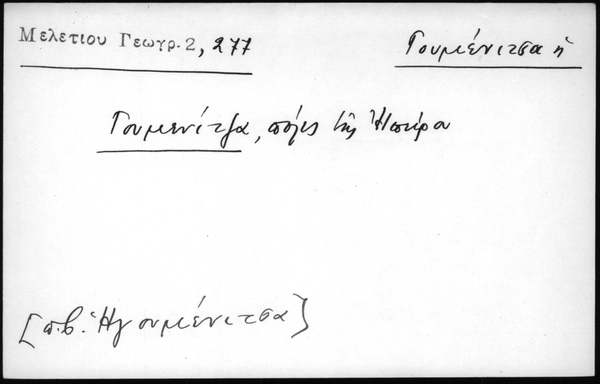 Μελετίου Γεωγρ. 2, 277
Γουμένιτσα ἡ
Γουμενίτζα, πόλις τῆς Ἠπείρου
[π.β. Ἡγουμένιτσα]